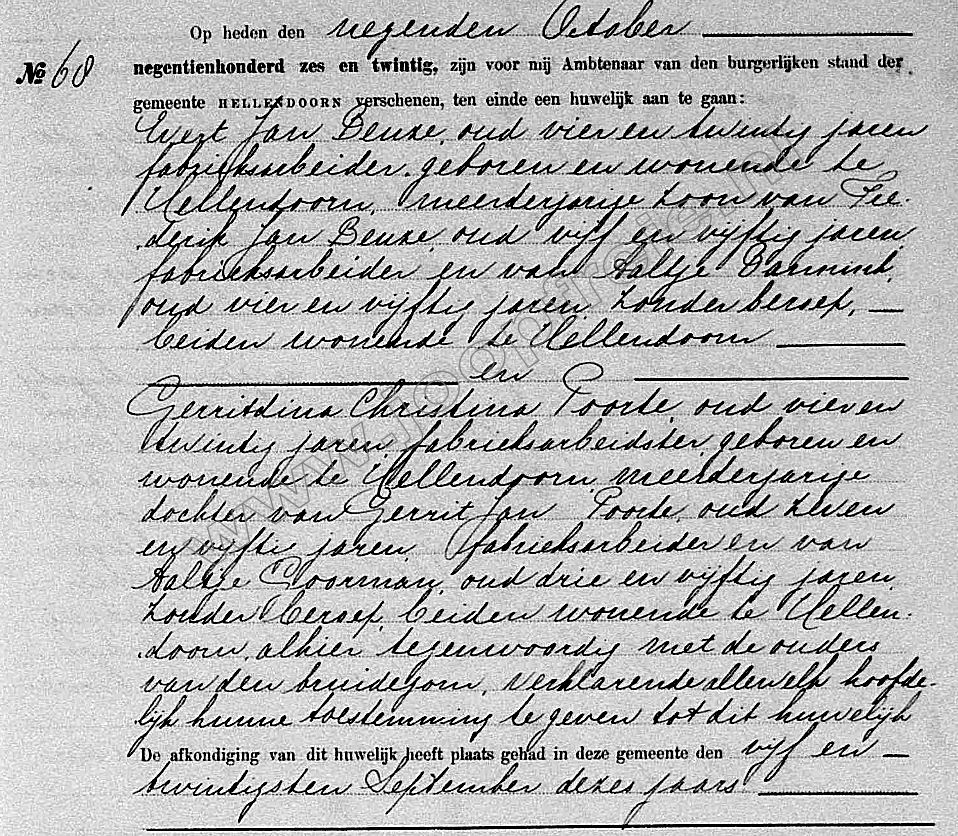 Op heden den negenden October
№ 68
negentienhonderd zes en twintig, zijn voor mij Ambtenaar van den burgerlijken stand der
gemeente HELLENDOORN verschenen, ten einde een huwelijk aan te gaan:
Evert Jan Beuze, oud vier en twintig jaren
fabrieksarbeider, geboren en wonende te
Hellendoorn, meerderjarige zoon van Fre-
derik Jan Beuze, oud vijf en vijftig jaren,
fabrieksarbeider en van Aaltje
oud vier en vijftig jaren, zonder beroep,
beiden wonende te Hellendoorn
en
Gerritdina Christina Poorte, oud vier en
twintig jaren, fabrieksarbeidster, geboren en
wonende te Hellendoorn, meerderjarige
dochter van Gerrit Jan Poorte, oud zeven
en vijftig jaren, fabrieksarbeider en van
Aaltje oud drie en vijftig jaren
zonder beroep, beiden wonende te Hellen-
doorn, alhier tegenwoordig met de ouders
van den bruidegom, verklarende allen elk hoofde-
lijk hunne toestemming te geven tot dit huwelijk
De afkondiging van dit huwelijk heeft plaats gehad in deze gemeente den vijf en
twintigsten September dezes jaars